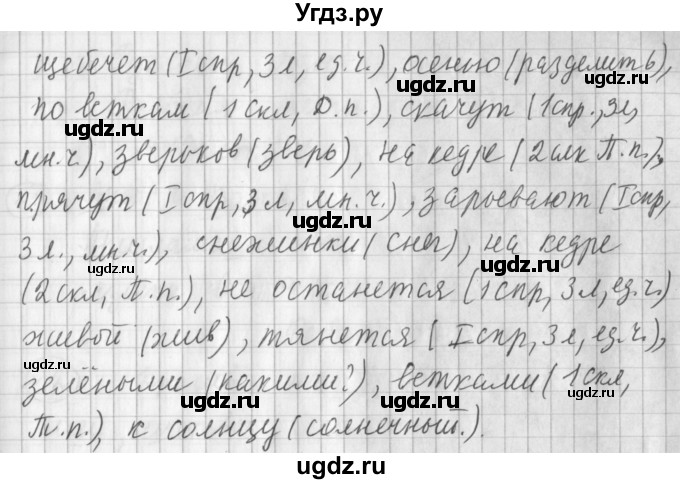 Угдз.ру
щебечет (I спр, 3 л, ед.ч.), осенью (разделит ь),
по веткам (1 скл, Д.п.), скачут (1 спр., 3л,
мн.ч.), зверьков (зверь), на кедре (2 скл П.п.),
прячут (I спр, 3 л, мн.ч.), зарывают (I спр,
3 л., мн.ч.), снежинки (снег), на кедре
(2 скл, П.п.), не останется (1 спр, 3 л, ед.ч.)
живой (жив), тянется (I спр, 3 л, ед.ч.),
зелёными (какими?), ветками (1 скл,
Т.п.), к солнцу (солнечный.).
ugdz.ru
ugdz.ru
ugdz.ru
ugdz.ru
ugdz.ru
ugdz.ru
ugdz.ru
ugdz.ru
ugdz.ru
ugdz.ru
ugdz.ru
ugdz.ru
ugdz.ru
ugdz.ru